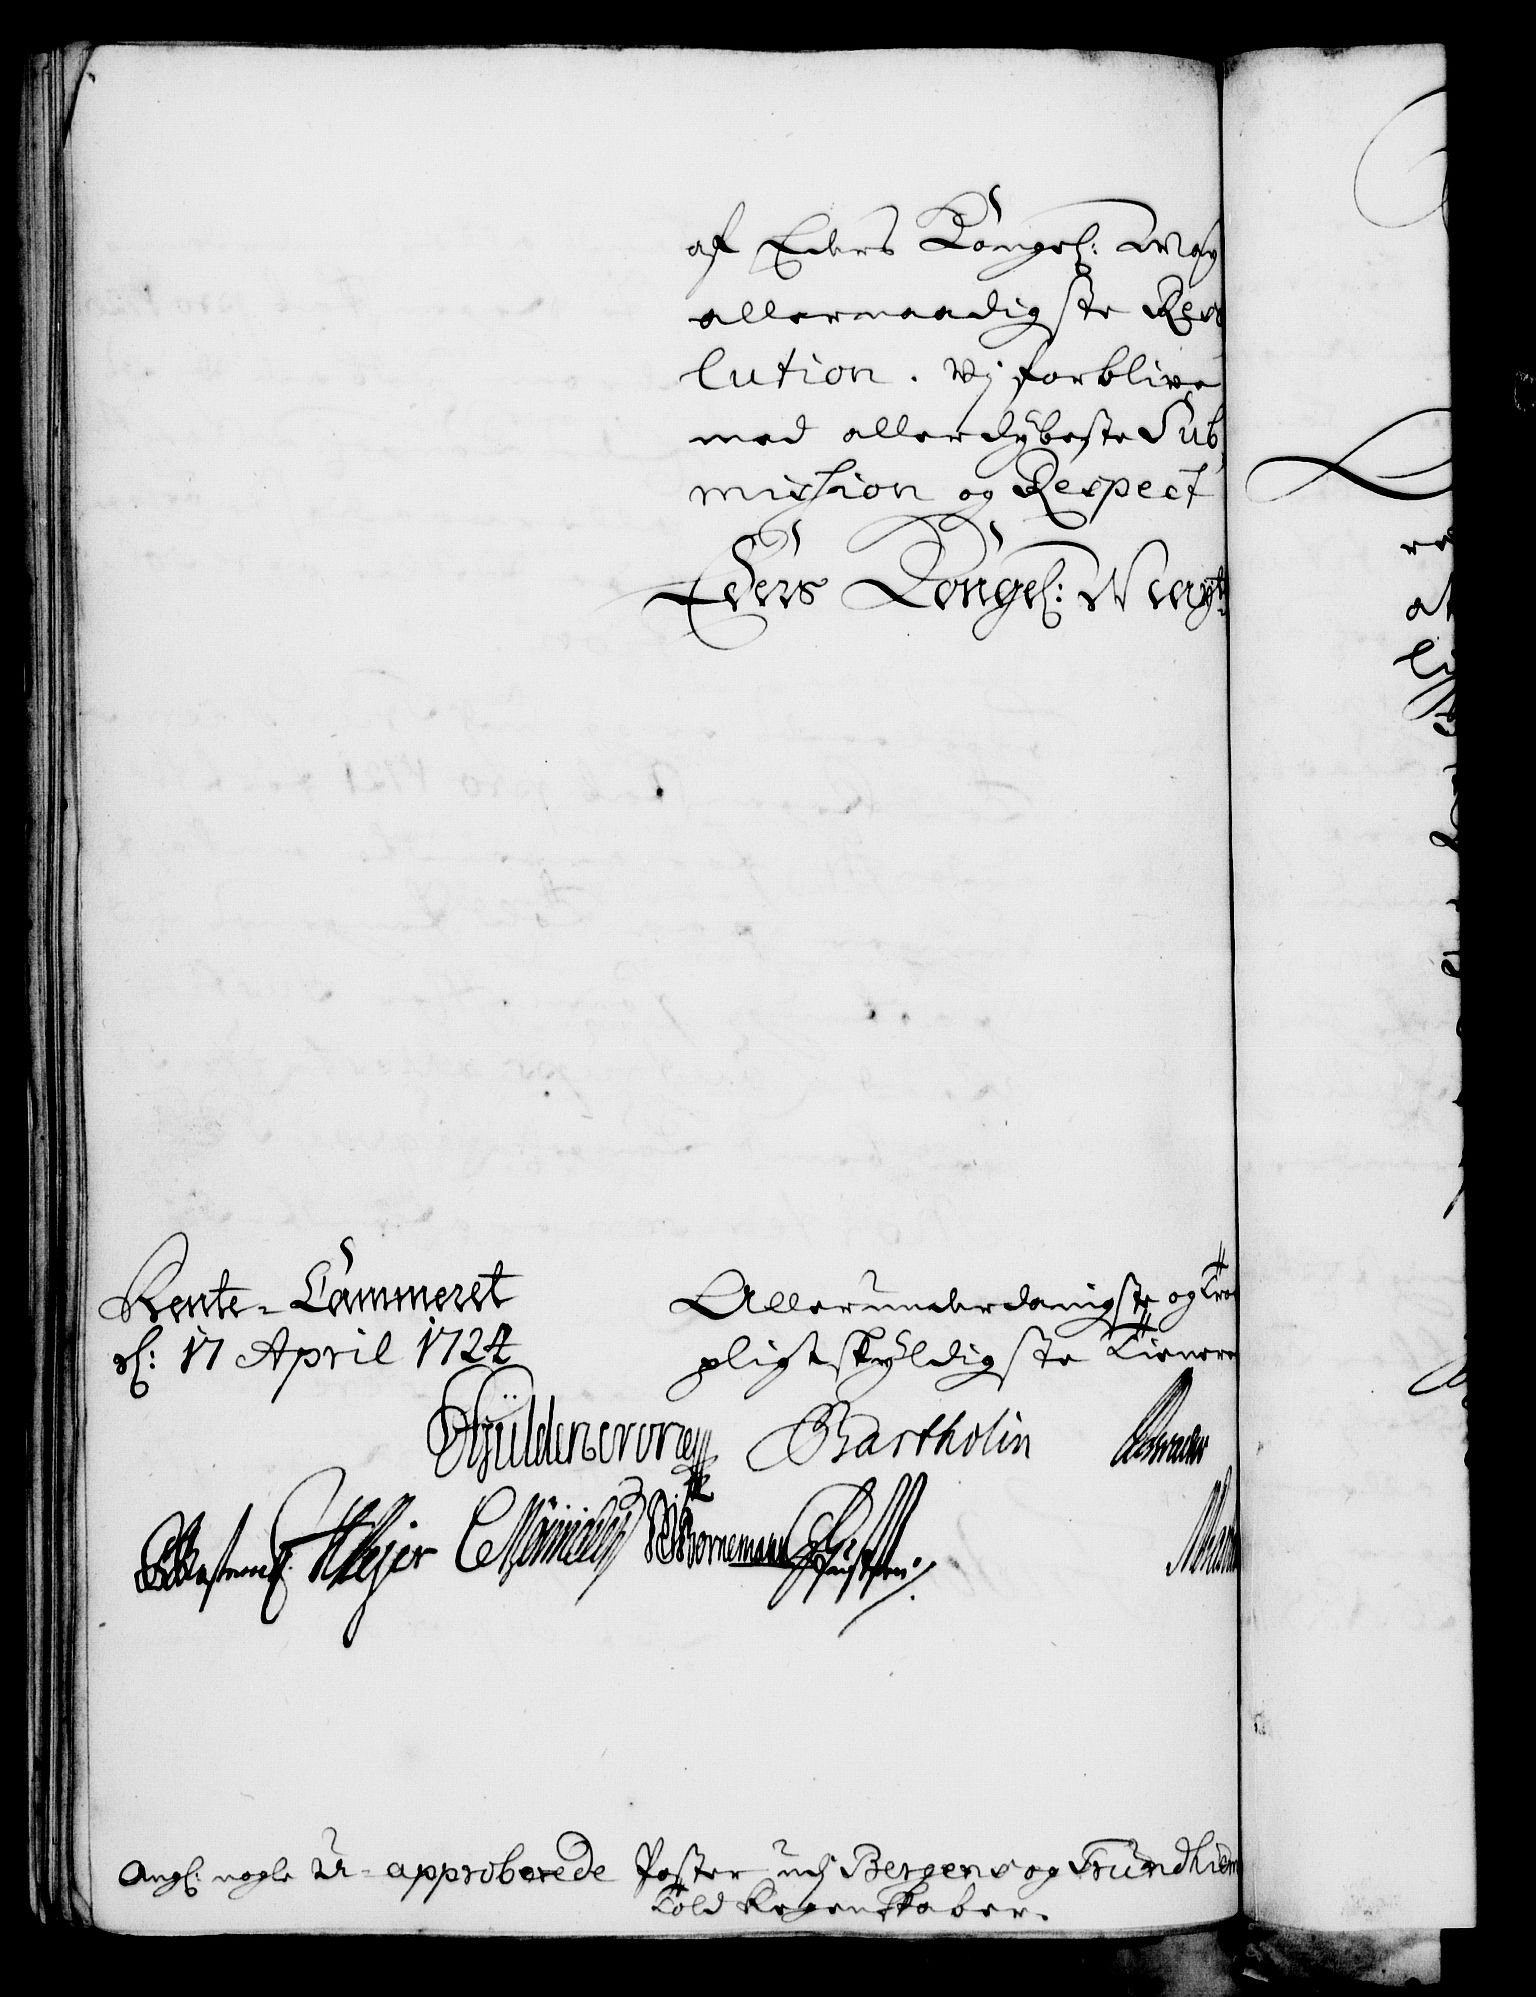 af Eders Kongel: May
allernaadigste Reso
lution. Vi forblive
med allerdÿbeste Sub
mission og Respect
Eders Kongel: Mayt
Rente-Cammeret
d: 17 April 1724
Allerunderdanigste og Tro
pligtskÿldigste Tienere
Gÿldencrone Bartholin
Meÿer Bornemann
Ang: nogle U-approberede Poster udj Bergens og Trundhiem
Told Regenskaber.